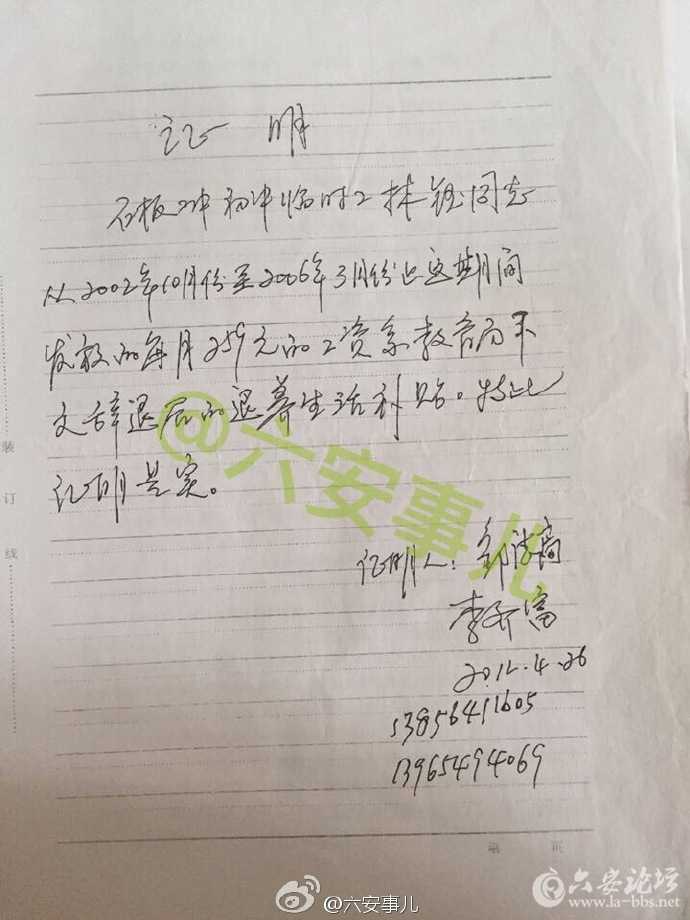 证 明
石板冲初中临时工林 同志
从2002年10月份至2006年3月份止这期间
发放的每月259元的工资系教育局下
文辞退后的退养生活补贴。特此
证明是实。
证明人：邹 高
李 富
2012.4.26
13856411605
13965494069
装
订
线
第 页
@六安事儿
@六安事儿
六安论坛
www.la-bbs.net